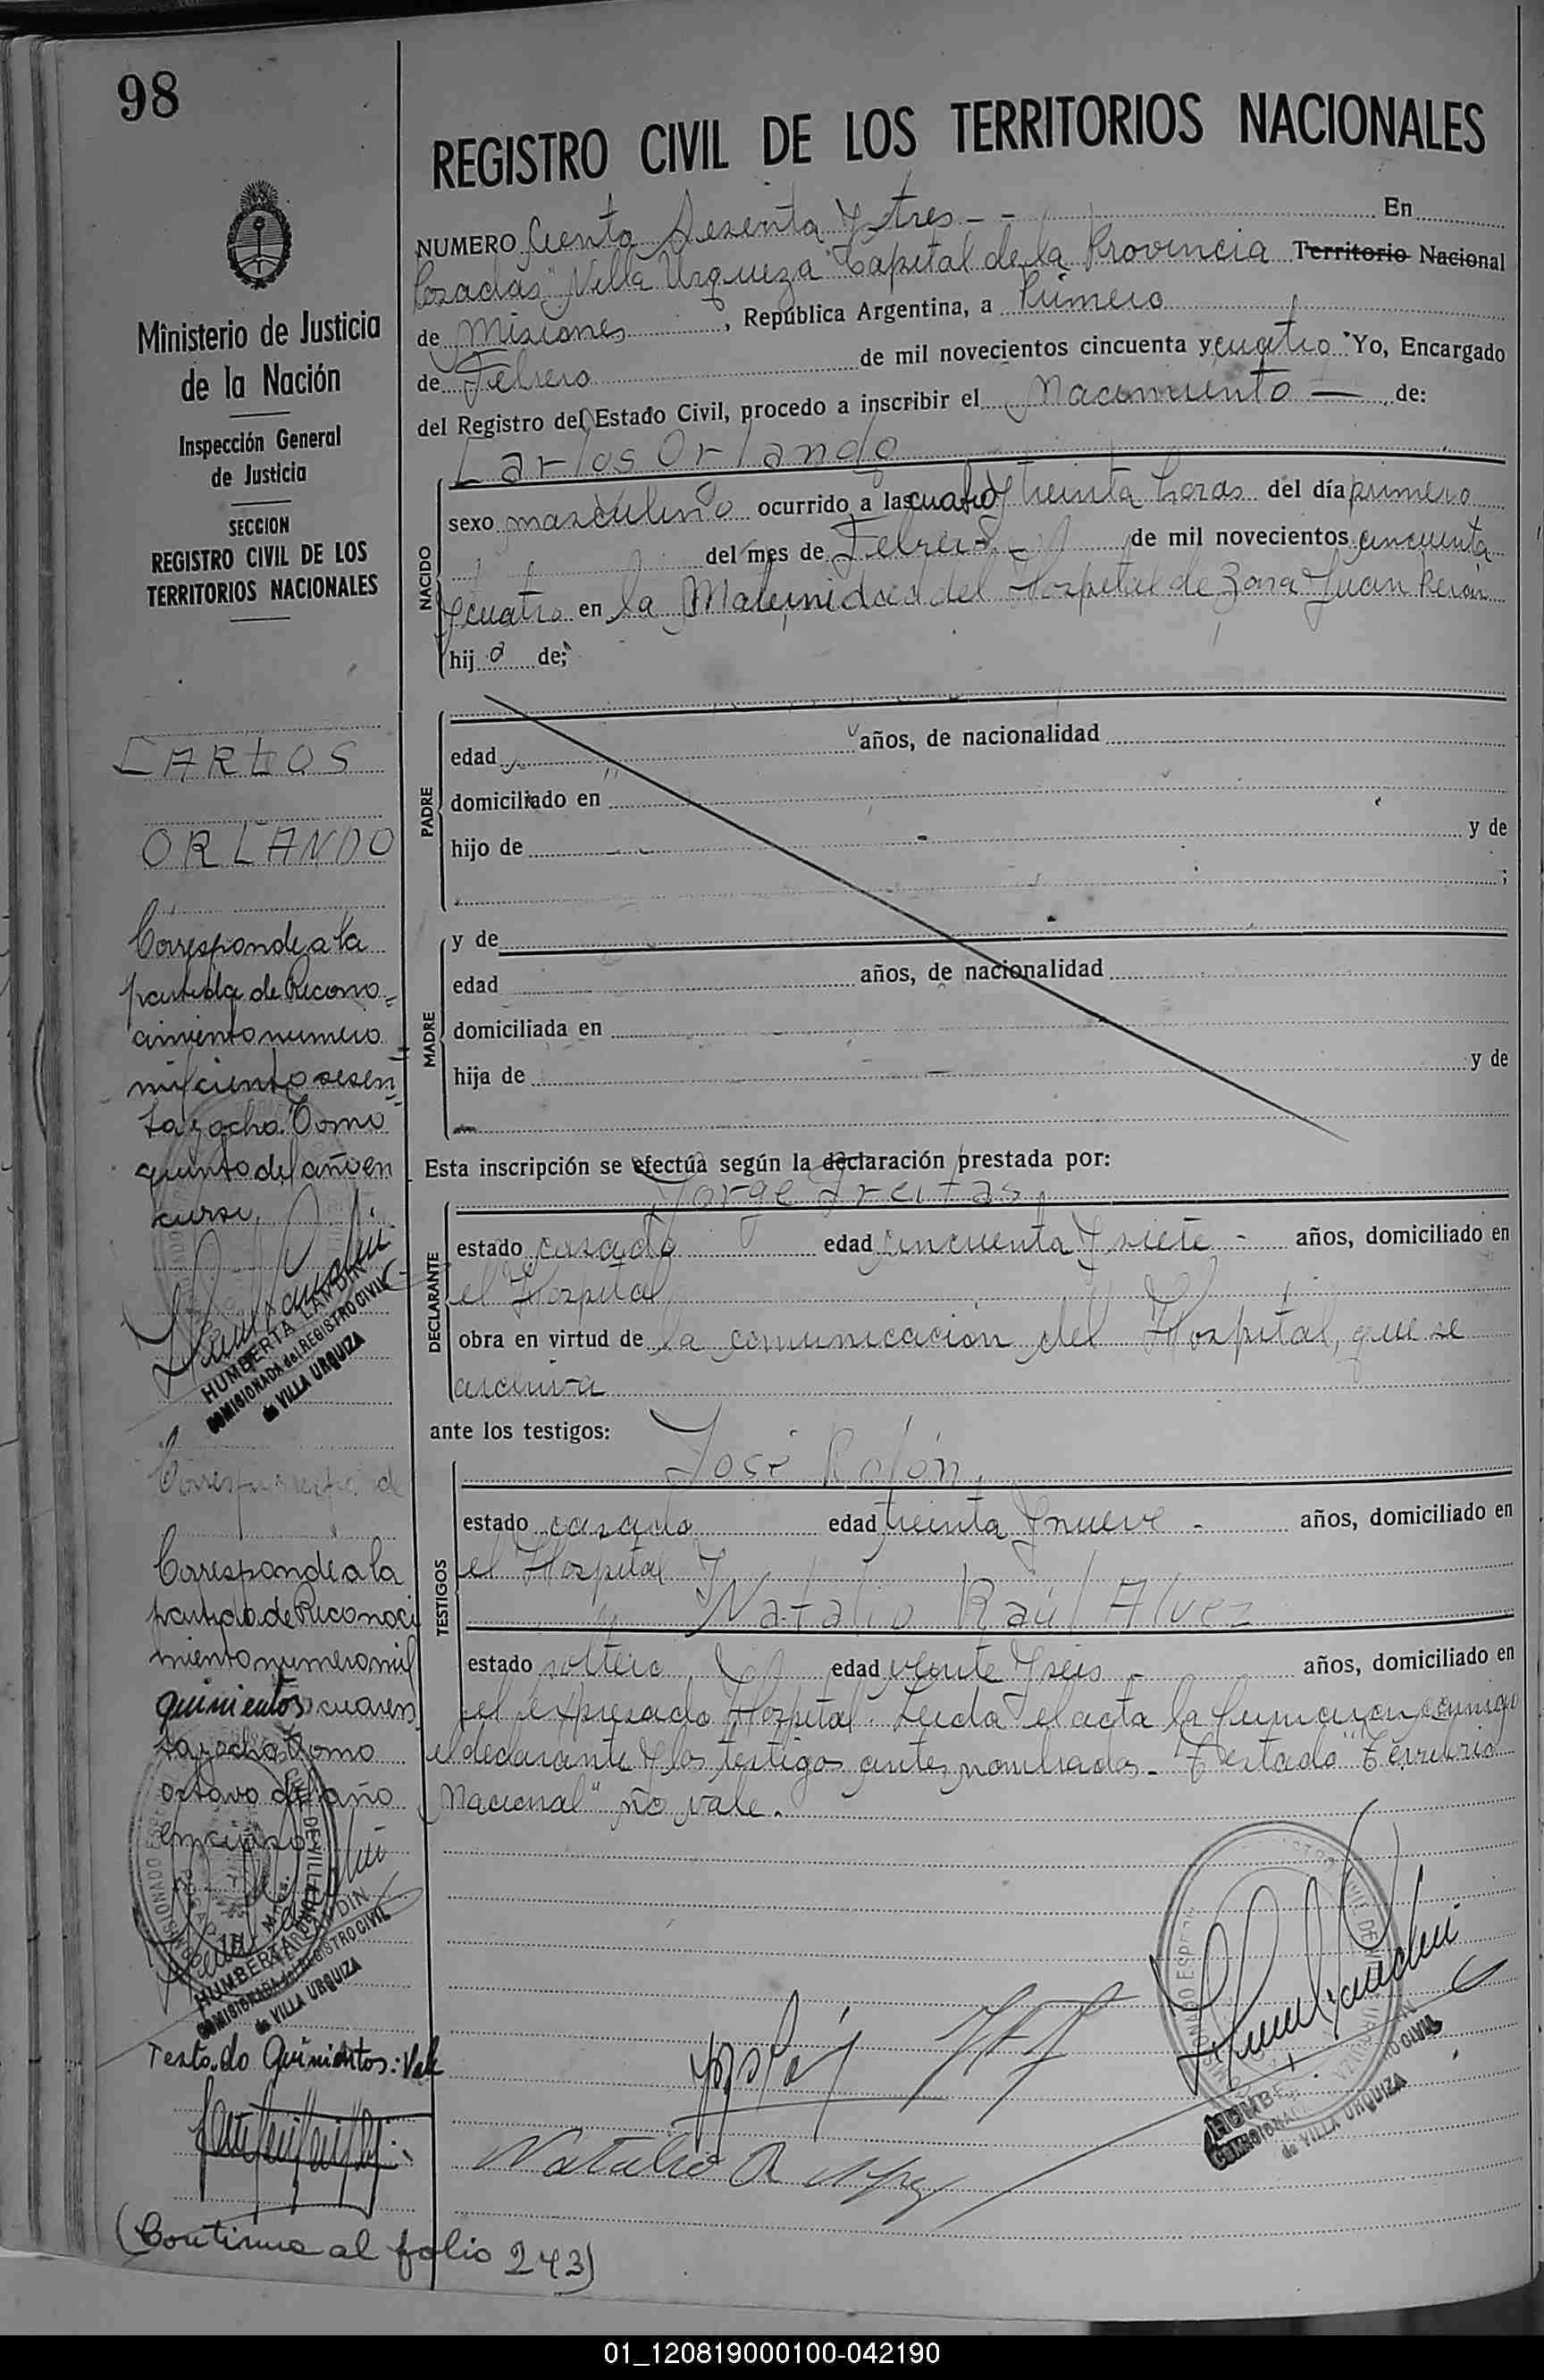 98
REGISTRO CIVIL DE LOS TERRITORIOS NACIONALES
Ministerio de Justicia
de la Nación
Inspección General
de Justicia
SECCION
REGISTRO CIVIL DE LOS
TERRITORIOS NACIONALES
NUMERO Ciento Sesenta y tres - - En
Posadas "Villa Urquiza" Capital de la Provincia Territorio Nacional
de Misiones, República Argentina, a Primero
de Febrero de mil novecientos cincuenta y cuatro Yo, Encargado
del Registro del Estado Civil, procedo a inscribir el Nacimiento — de:
Carlos Orlando
NACIDO
sexo masculino ocurrido a las cuatro y treinta horas del día primero
del mes de Febrero - de mil novecientos cincuenta
y cuatro en la Maternidad del Hospital de Zona Juan Perón
hijo de;
PADRE
edad años, de nacionalidad
domiciliado en
hijo de y de
;
MADRE
y de
edad años, de nacionalidad
domiciliada en
hija de y de
Esta inscripción se efectúa según la declaración prestada por:
Jorge Freitas
DECLARANTE
estado casado edad cincuenta y siete - años, domiciliado en
el Hospital
obra en virtud de la comunicación del Hospital, que se
archiva
ante los testigos:
José Rolón,
TESTIGOS
estado casado edad treinta y nueve - años, domiciliado en
el Hospital y
Natalio Raúl Alvez
estado soltero edad veinte y seis - años, domiciliado en
el expresado Hospital. Leida el acta la firmaron conmigo
el declarante y los testigos antes nombrados. Testado "Territorio
Nacional" no vale.
CARLOS
ORLANDO
Corresponde a la
partida de Recono=
cimiento numero
mil ciento sesen=
ta y ocho. Tomo
quinto del año en
curso.
HUMBERTA LANDIN
COMISIONADA del REGISTRO CIVIL
de VILLA URQUIZA
Corresponde a la
partida de Reconoci
miento numero mil
quinientos cuaren
ta y ocho Tomo
octavo del año
en curso
HUMBERTA LANDIN
COMISIONADA del REGISTRO CIVIL
de VILLA URQUIZA
Testado Quinientos: Vale
Natalio R
COMISIONADA
REGISTRO CIVIL
de VILLA URQUIZA
(Continua al folio 243)
01_120819000100-042190